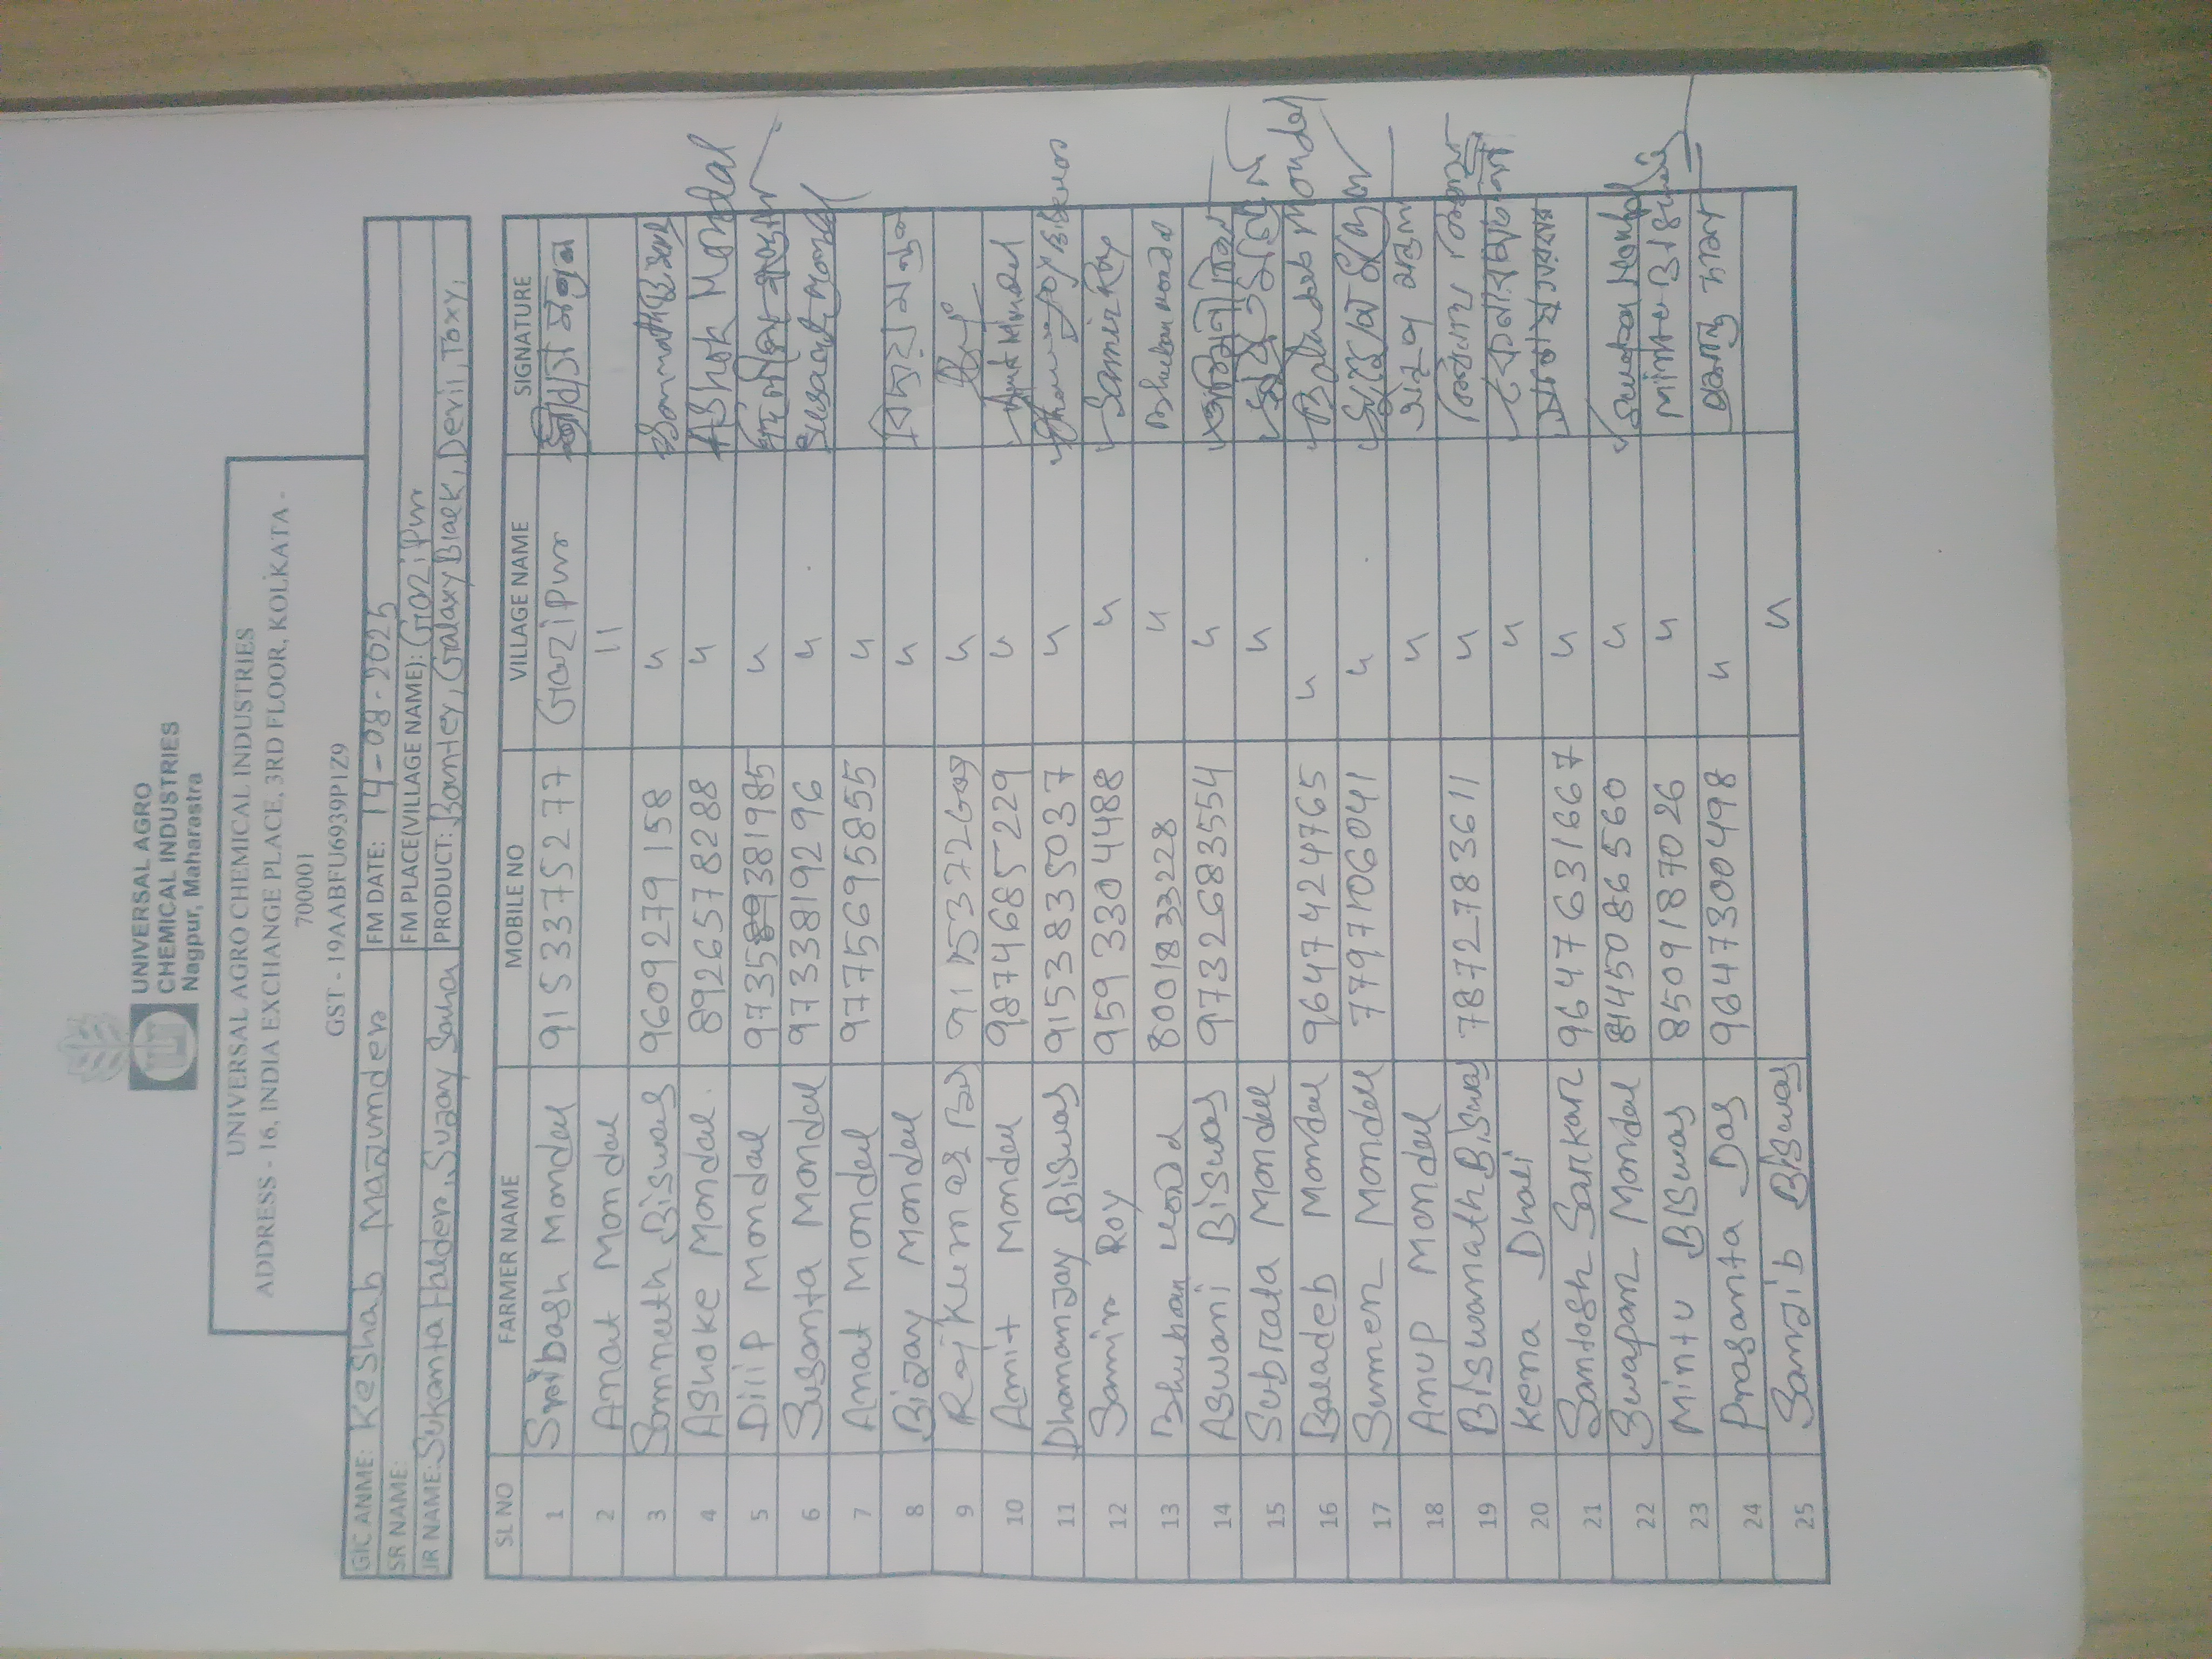 UNIVERSAL AGRO
CHEMICAL INDUSTRIES
Nagpur, Maharastra
UNIVERSAL AGRO CHEMICAL INDUSTRIES
ADDRESS - 16, INDIA EXCHANGE PLACE, 3RD FLOOR, KOLKATA -
700001
GST - 19AABFU6939P1Z9
GIC ANME: Keshab Mazumder FM DATE: 14-08-2025
SR NAME: FM PLACE(VILLAGE NAME): Gazipur
JR NAME: Sukanta Halder, Suzay Saha PRODUCT: Bantey, Galaxy Black, Devil, Toxy,
SL NO FARMER NAME MOBILE NO VILLAGE NAME SIGNATURE
1 Sribash Mondal 9153375277 Gazipur
2 Anat Mondal 11
3 Somnath Biswas 9609279158 u
4 Ashoke Mondal. 8926578288 u Ashok Mondal
5 Dilip Mondal u
6 Susanta Mondal 9733819296 u Susanta Mondal
7 Anat Mondal 9775695855 u
8 Bizay Mondal u বিজয় মন্ডল
9 Raj Kumar u
10 Amit Mondal 9874685229 u Amit Mondal
11 Dhananzay Biswas 9153835037 u
12 Samir Roy 9593304488 u Samir Roy
13 Bhuban 8001833228 u
14 Aswani Biswas 9732683554 u
15 Subrata Mondal u
16 Baladeb Mondal 9647424765 u Baladeb Mondal
17 Sumen Mondal 7797106041 u
18 Anup Mondal u
19 Biswanath Biswas 7872783611 u
20 Kena Dhali u
21 Santosh Sarkar 9647631667 u সন্তোষ সরকার
22 Swapan Mondal u
23 Mintu Biswas 8509187026 u
24 Prasanta Das 9647300498 u
25 Sanzib Biswas u